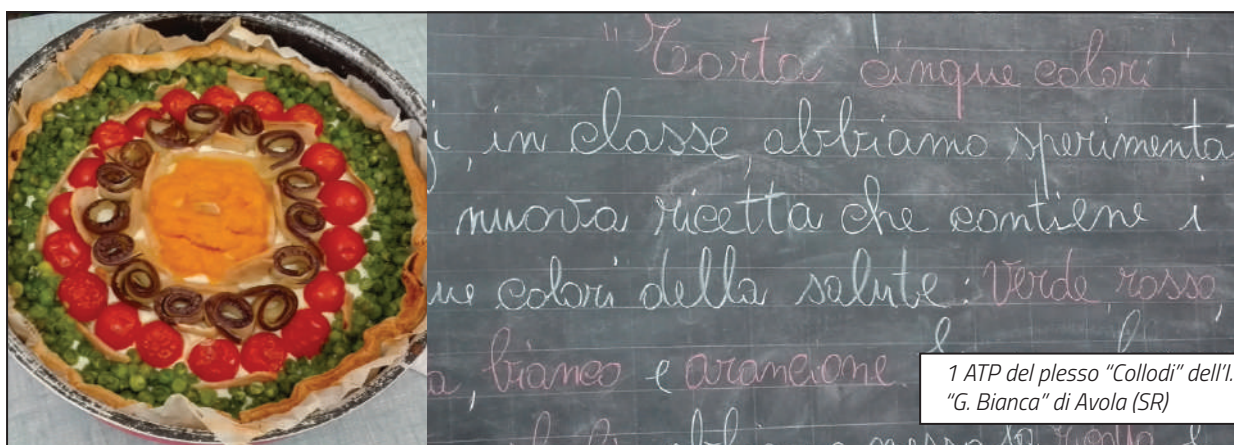 "Torta cinque colori"
i, in classe, abbiamo sperimenta
nuova ricetta che contiene i
ue colori della salute: Verde rosso,
a, bianco e arancione.
1 ATP del plesso "Collodi" dell'I.
"G. Bianca" di Avola (SR)